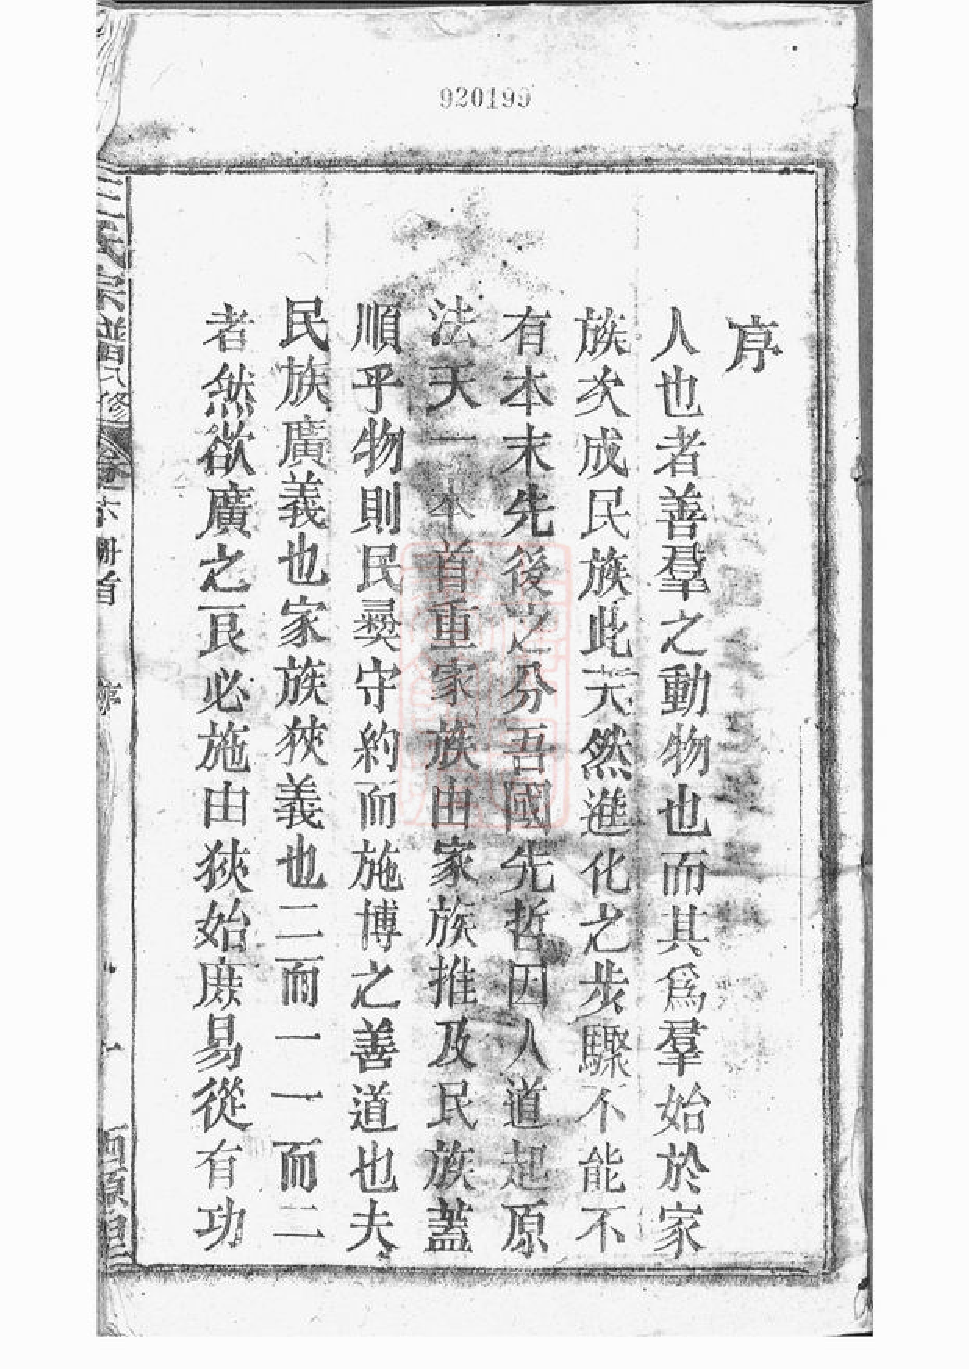 920199
序
人也者善羣之動物也而其爲羣始於家
族次成民族此天然進化之步驟不能不
有本末先後之分吾國先哲因人道起原
法天一本首重家族由家族推及民族蓋
順乎物則民彝守約而施博之善道也夫
民族廣義也家族狹義也二而一一而二
者然欲廣之良必施由狹始庶易從有功
王氏宗譜 修
卷 首
序